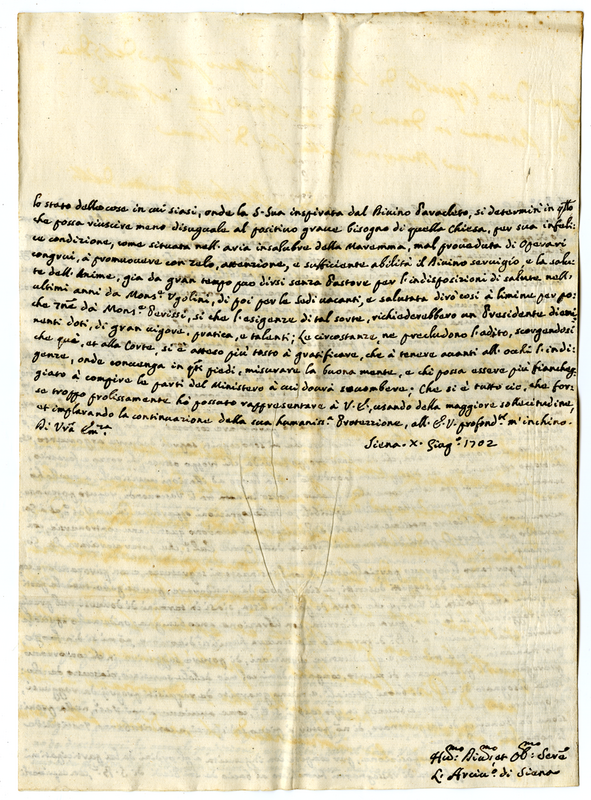 lo stato delle cose in cui siasi, onde la S. Sua inspirata dal Divino Paracleto, si determini in qsto
che possa riuscire meno disuguale al positivo grave bisogno di quella Chiesa, per sua infeli-
ce condizione, come situata nell'aria insalubre della Maremma, mal proveduta di Operari
congrui, à promuovere con zelo, attenzione, e sufficiente abilità il Divino servigio, e la salu-
te dell'Anime, gia da gran tempo può dirsi senza Pastore per l'indisposizioni di salute nell'
ultimi anni da Mons.r Ugolini, di poi per le Sedi vacanti, e salutata dirò così à limine per po-
che da Mons.r Perissi, si che l'esigenze di tal sorte, richiederebbero un Presidente d'emi-
nenti doti, di gran vigore, pratica, e talenti; Le circostanze ne precludono l'adito, scorgendosi
che quà, et alla Corte, si è atteso più tosto à gratificare, che à tenere avanti all'occhi l'indi-
genze, onde convenga in qti piedi, misurare la buona mente, e chi possa essere più fiancheg-
giato à compire le parti del Ministero à cui dovrà socombere; Che si è tutto ciò, che for-
se troppo prolissamente hò possuto rappresentare à V. E., usando della maggiore sollecitudine,
et implorando la continuazione della sua humaniss.a Protezzione, all'E. V. profond.te m'inchino.
Di Vra Em.za
Siena. X. Giug.o 1702
Hu.mo Div.mo et Ob.mo Serv.e
L'Arciv.o di Siena